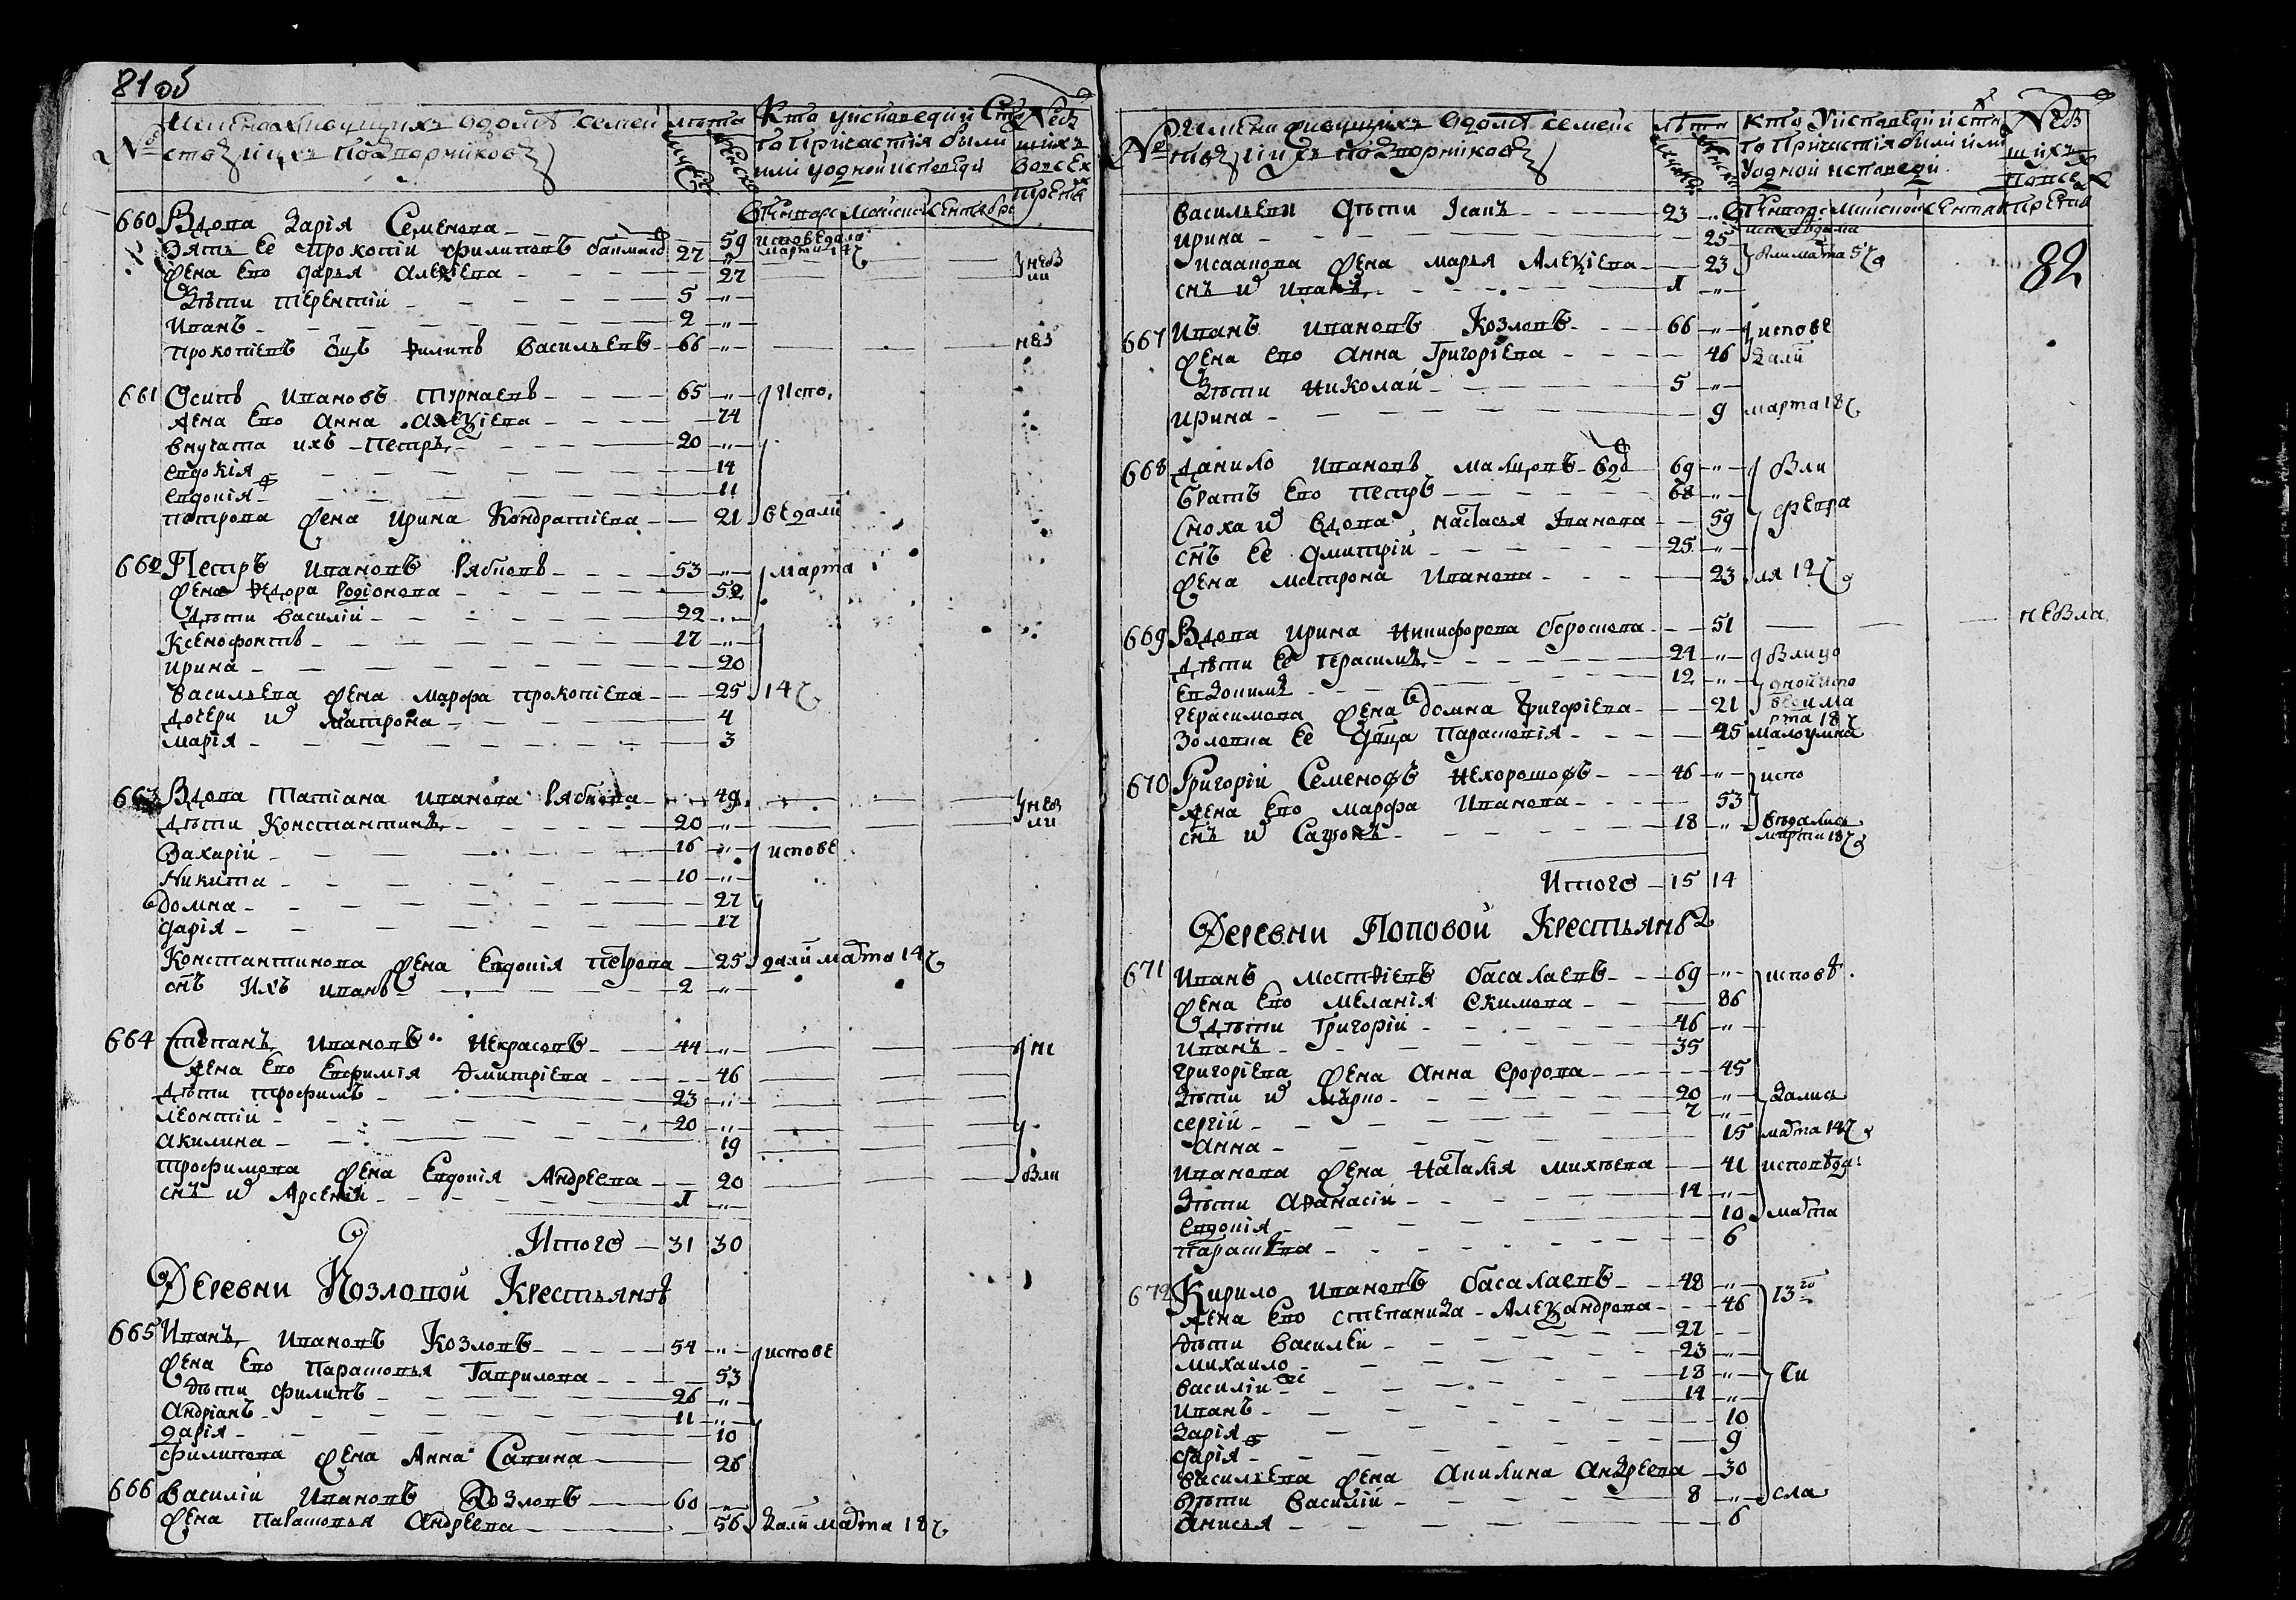 81 об
№
Имена живущихъ вдомѣ семей
ствъ ііихъ подворниковъ
лѣта
мужес
женско
Кто уисповедии Свѧ
та Причастія были
или уодной исповеди
Небы
шихъ
вовсех
660 Вдова Дарія Семенова 59 исповедали
Зять ее Прокопій Филиповъ 27 марта 14
Жена ево Дарья Алексіева 27
Дѣти Терентій 5
Иванъ 2
Прокопіевъ отцъ Филипъ Васильевъ 66 неб
661 Осипъ Ивановъ Турнаевъ 65 Испо
Жена ево Анна Алексіева 74
внучата ихъ Петръ 20
Евдокія 14
Евдокія 11
Петрова жена Ирина Кондратіева 21 ведали
662 Петръ Ивановъ Рябковъ 53 марта
Жена Федора Родіонова 52
Дѣти Василій 22
Ксенофонтъ 17
Ирина 20
Васильева жена Марфа Прокопіева 25 14
Дочери и Матрона 4
Марія 3
663 Вдова Татіана Иванова Рябкова 49 неб
Дѣти Константинъ 20 ли
Захарій 16 испове
Никита 10
Домна 27
Дарія 17
Константинова жена Евдокія Петрова 25 дали марта 14
снъ ихъ Иванъ 2
664 Степанъ Ивановъ Некрасовъ 44 не
Жена ево Евфимія Дмитріева 46
Дѣти Трофимъ 23
Леонтій 20
Акилина 19
Трофимова жена Евдокія Андреева 20 были
снъ и Арсеній 1
Итого 31 30
Деревни Козловой Крестьянѣ
665 Иванъ Ивановъ Козловъ 54 испове
Жена ево Парасковья Гаврилова 53
Дѣти Филипъ 26
Андріанъ 11
Дарія 10
Филипова жена Анна Савина 26
666 Василій Ивановъ Козловъ 60
Жена Парасковья Андреева 56 дали марта 18
№
Имени живущихъ вдомѣ семейс
твъ ііихъ подворниковъ
лѣта
Кто уисповеди исвѧ
та Причастія были или
уодной исповеди
Небы
шихъ
вовсех
82
Васильевы дѣти Исакъ 23
Ирина 25 исповедали
Исаакова жена Марья Алексіева 23 были марта 5
снъ и Иванъ 1
667 Иванъ Ивановъ Козловъ 66 испове
Жена ево Анна Григоріева 46 дали
Дѣти Николай 5
Ирина 9 марта 18
668 Данило Ивановъ Мальцовъ вдв 69 были
братъ ево Петръ 68
Сноха и вдова Настасья Иванова 59 февра
снъ ее Дмитрій 25
Жена Матрона Иванова 23 ля 12
669 Вдова Ирина Никифорова 51 небыла
Дѣти ее Герасимъ 24 были уо
Евдокимъ 12 дной испо
Герасимова жена Домна Григоріева 21 веди ма
Золовка ее двца Парасковія 25 рта 18 малоумна
670 Григорій Семеновъ Нехорошовъ 46 испо
Жена ево Марфа Иванова 53
снъ и Сазонъ 18 ведались марта 18
Итого 15 14
Деревни Поповой Крестьянѣ
671 Иванъ Матфіевъ Басалаевъ 69 исповѣ
Жена ево Меланія Екимова 86
Дѣти Григорій 46
Иванъ 35
Григоріева жена Анна Фророва 45
Дѣти и Марко 20 дались
Сергій 7
Анна 15 марта 14
Иванова жена Наталія Михѣева 41 исповѣда
Дѣти Афанасій 14
Евдокія 10 марта
Парасковіа 6
672 Кирило Ивановъ Басалаевъ 48 13го
Жена ево Степанида Александрова 46
Дѣти Василей 27
Михаило 23
Василій 18 Чи
Иванъ 14
Дарія 10
Дарія 9
Васильева жена Акилина Андреева 30
Дѣти Василій 8 сла
Анисья 6